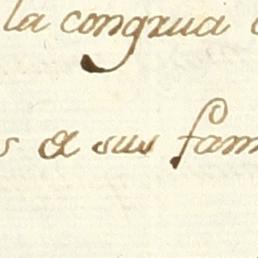 la congrua
a sus fam